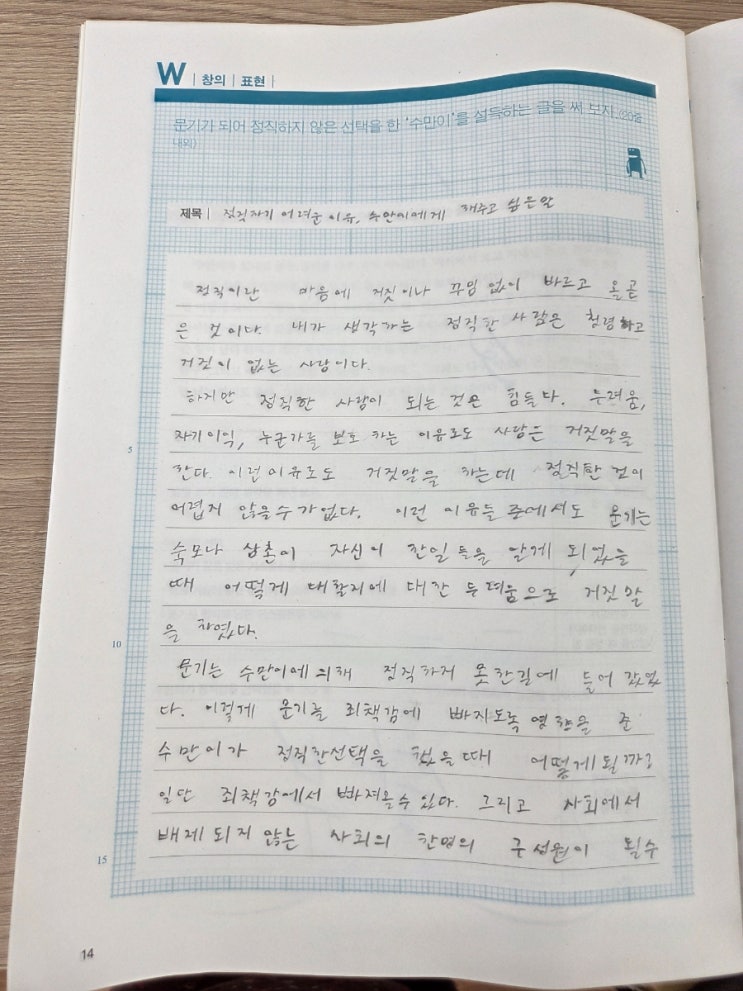 W | 창의 | 표현 |
문기가 되어 정직하지 않은 선택을 한 '수만이'를 설득하는 글을 써 보자.(20줄
내외)
제목 | 정직하기 어려운 이유, 수만이에게 해주고 싶은말
정직이란 마음에 거짓이나 꾸밈 없이 바르고 올곧
은 것이다. 내가 생각하는 정직한 사람은 청렴하고
거짓이 없는 사람이다.
하지만 정직한 사람이 되는 것은 힘들다. 두려움,
5 자기이익, 누군가를 보호 하는 이유로도 사람은 거짓말을
한다. 이런이유로도 거짓말을 하는데 정직한 것이
어렵지 않을수가없다. 이런 이유들 중에서도 문기는
숙모나 삼촌이 자신이 한일 들을 알게 되었을
때 어떻게 대할지에 대한 두려움으로 거짓말
10 을 하였다.
문기는 수만이에의해 정직하지 못한길에 들어 갔었
다. 이렇게 문기를 죄책감에 빠지도록 영향을 준
수만이가 정직한선택을 했을때 어떻게될까?
일단 죄책감에서 빠져올수있다. 그리고 사회에서
15 배제 되지 않는 사회의 한명의 구성원이 될수
14